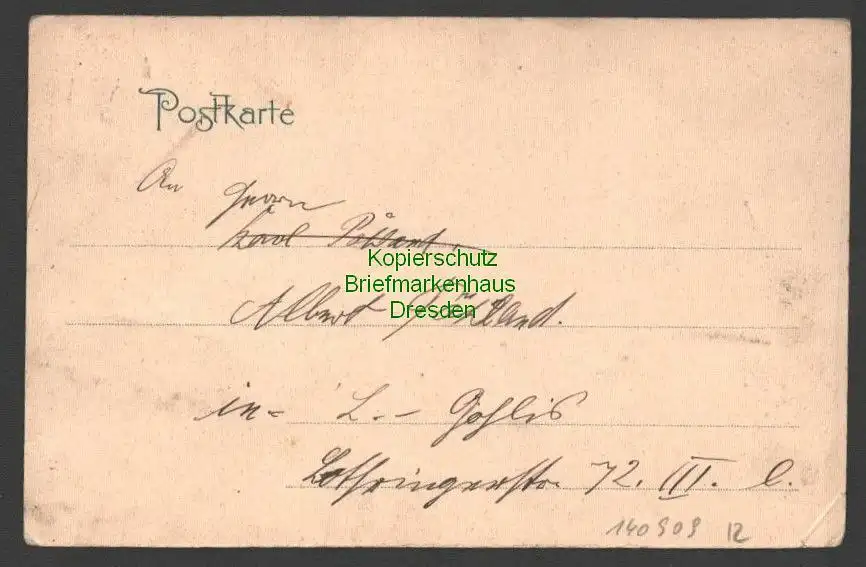 Postkarte
An Herrn
Karl
Kopierschutz
Briefmarkenhaus
Dresden
Albert
in- L.- Gohlis
Lothringerstr. 72. III. l.
140909 12